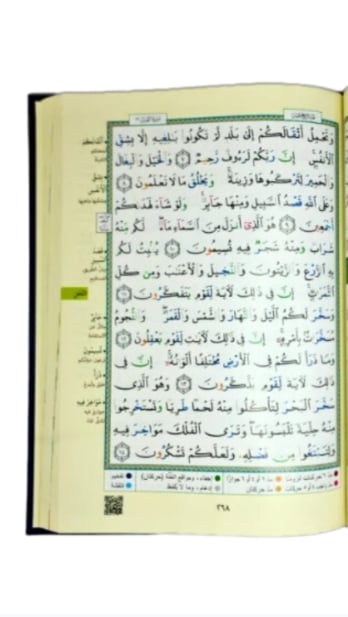 وَتَحْمِلُ أَثْقَالَكُمْ إِلَىٰ بَلَدٍ لَّمْ تَكُونُوا۟ بَٰلِغِيهِ إِلَّا بِشِقِّ
ٱلْأَنفُسِ ۚ إِنَّ رَبَّكُمْ لَرَءُوفٌ رَّحِيمٌ ٧ وَٱلْخَيْلَ وَٱلْبِغَالَ
وَٱلْحَمِيرَ لِتَرْكَبُوهَا وَزِينَةً ۚ وَيَخْلُقُ مَا لَا تَعْلَمُونَ ٨
وَعَلَى ٱللَّهِ قَصْدُ ٱلسَّبِيلِ وَمِنْهَا جَآئِرٌ ۚ وَلَوْ شَآءَ لَهَدَىٰكُمْ
أَجْمَعِينَ ٩ هُوَ ٱلَّذِىٓ أَنزَلَ مِنَ ٱلسَّمَآءِ مَآءً ۖ لَّكُم مِّنْهُ
شَرَابٌ وَمِنْهُ شَجَرٌ فِيهِ تُسِيمُونَ ١٠ يُنۢبِتُ لَكُم
بِهِ ٱلزَّرْعَ وَٱلزَّيْتُونَ وَٱلنَّخِيلَ وَٱلْأَعْنَٰبَ وَمِن كُلِّ
ٱلثَّمَرَٰتِ ۗ إِنَّ فِى ذَٰلِكَ لَءَايَةً لِّقَوْمٍ يَتَفَكَّرُونَ ١١
وَسَخَّرَ لَكُمُ ٱلَّيْلَ وَٱلنَّهَارَ وَٱلشَّمْسَ وَٱلْقَمَرَ ۖ وَٱلنُّجُومُ
مُسَخَّرَٰتٌۢ بِأَمْرِهِۦٓ ۗ إِنَّ فِى ذَٰلِكَ لَءَايَٰتٍ لِّقَوْمٍ يَعْقِلُونَ ١٢
وَمَا ذَرَأَ لَكُمْ فِى ٱلْأَرْضِ مُخْتَلِفًا أَلْوَٰنُهُۥٓ ۗ إِنَّ فِى
ذَٰلِكَ لَءَايَةً لِّقَوْمٍ يَذَّكَّرُونَ ١٣ وَهُوَ ٱلَّذِى
سَخَّرَ ٱلْبَحْرَ لِتَأْكُلُوا۟ مِنْهُ لَحْمًا طَرِيًّا وَتَسْتَخْرِجُوا۟
مِنْهُ حِلْيَةً تَلْبَسُونَهَا وَتَرَى ٱلْفُلْكَ مَوَاخِرَ فِيهِ
وَلِتَبْتَغُوا۟ مِن فَضْلِهِۦ وَلَعَلَّكُمْ تَشْكُرُونَ ١٤
٢٦٨